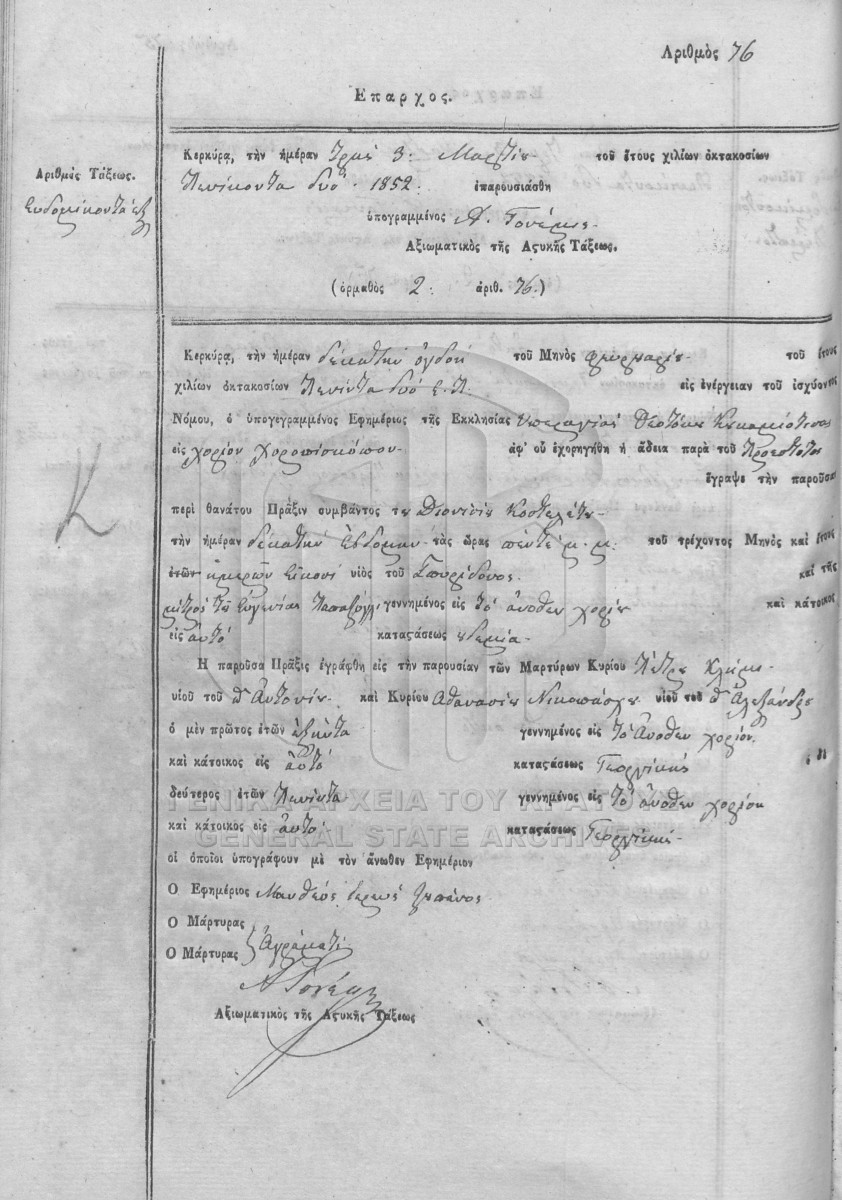 Αριθμὸς 76
Επαρχος.
Αριθμὸς Τάξεως.
Ευδομίκοντα έξ
Κερκύρᾳ, τὴν ἡμέραν τρης 3: Μαρτίου τοῦ ἔτους χιλίων ὀκτακοσίων
πενίκοντα δυό. 1852. ἐπαρουσιάσθη
ὑπογραμμένος Α. Γονέμης
Αξιωματικὸς τῆς Αςυκῆς Τάξεως.
(ὁρμαθὸς 2: ἀριθ. 76.)
Κερκύρᾳ, τὴν ἡμέραν δέκατην ὀγδοη τοῦ Μηνὸς φευρουαρίου τοῦ ἔτους
χιλίων ὀκτακοσίων πενίντα δυό Ε.Π. εἰς ἐνέργειαν τοῦ ἰσχύοντος
Νόμου, ὁ ὑπογεγραμμένος Εφημέριος τῆς Εκκλησίας υπεραγίας Θεοτόκου
εἰς χορίον χοροπισκόπου ἀφ' οὗ ἐχορηγήθη ἡ ἄδεια παρὰ τοῦ Προεστότος
ἔγραψε τὴν παροῦσαν
Κ
περὶ θανάτου Πρᾶξιν συμβάντος του Διονισίου Κοστελέτου
τὴν ἡμέραν δέκατην Εβδομην τὰς ὥρας πέντε μ.μ: τοῦ τρέχοντος Μηνὸς καὶ ἔτους
ἐτῶν ημερῶν Είκοσι υἱὸς τοῦ Σπυρίδονος καὶ τῆς
μιτρος του Ευγενίας γεννημένος εἰς τὸ ἄνοθεν χορίον καὶ κάτοικος
εἰς αυτό καταςάσεως ουδεμία
Η παροῦσα Πρᾶξις ἐγράφθη εἰς τὴν παρουσίαν τῶν Μαρτύρων Κυρίου Πέτρου Κλήμη
υἱοῦ τοῦ π Αντονίου καὶ Κυρίου Αθανασίου υἱοῦ τοῦ π Αλεξάνδρου
ὁ μὲν πρῶτος ἐτῶν εξήντα γεννημένος εἰς τὸ άνοθεν χορίον
καὶ κάτοικος εἰς αυτό καταςάσεως Γεοργικής ὁ δὲ
δεύτερος ἐτῶν πενίντα γεννημένος εἰς τὸ άνοθεν χορίον
καὶ κάτοικος εἰς αυτό καταςάσεως Γεοργικής
οἱ ὁποῖοι ὑπογράφουν μὲ τὸν ἄνωθεν Εφημέριον
Ο Εφημέριος Μανθεός Ιερεύς
Ο Μάρτυρας
Ο Μάρτυρας } Αγράματι
Α Γονέμης
Αξιωματικὸς τῆς Αςυκῆς Τάξεως
ΓΕΝΙΚΑ ΑΡΧΕΙΑ ΤΟΥ ΚΡΑΤΟΥΣ
GENERAL STATE ARCHIVES